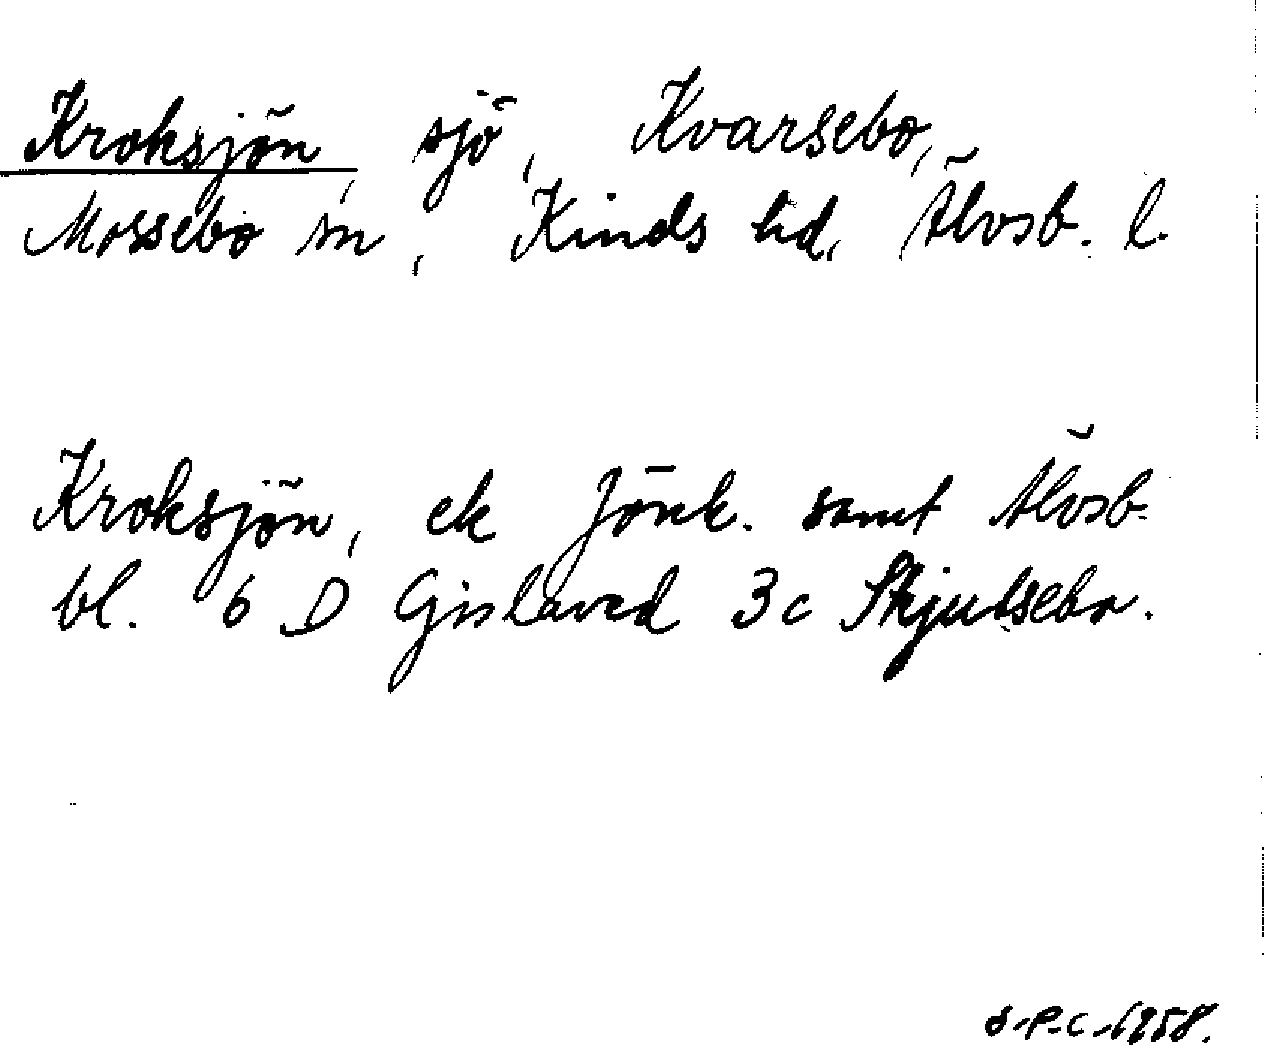 Kroksjön, sjö, Kvarsebo,
Mossebo sn, Kinds hd, Älvsb. l.
Kroksjön, ek Jönk. samt Älvsb.
bl. 6 D Gislaved 3c Skjutsebo.
S-P-C-1958.